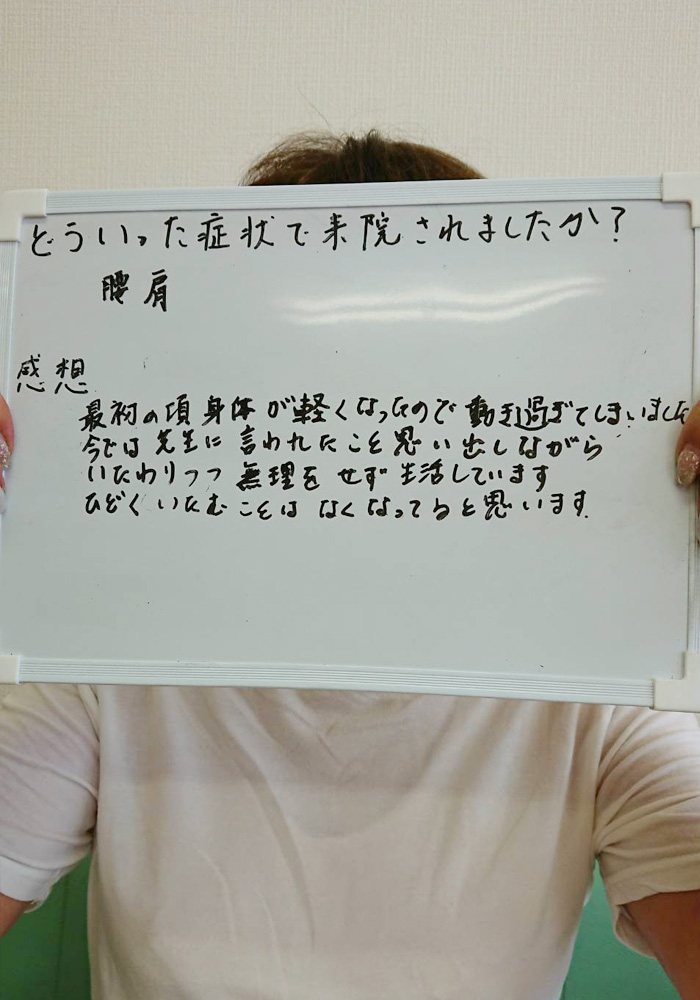 どういった症状で来院されましたか?
腰肩
感想
最初の頃身体が軽くなったので動き過ぎてしまいました
今では先生に言われたこと思い出しながら
いたわりつつ無理をせず生活しています
ひどくいたむことはなくなってると思います